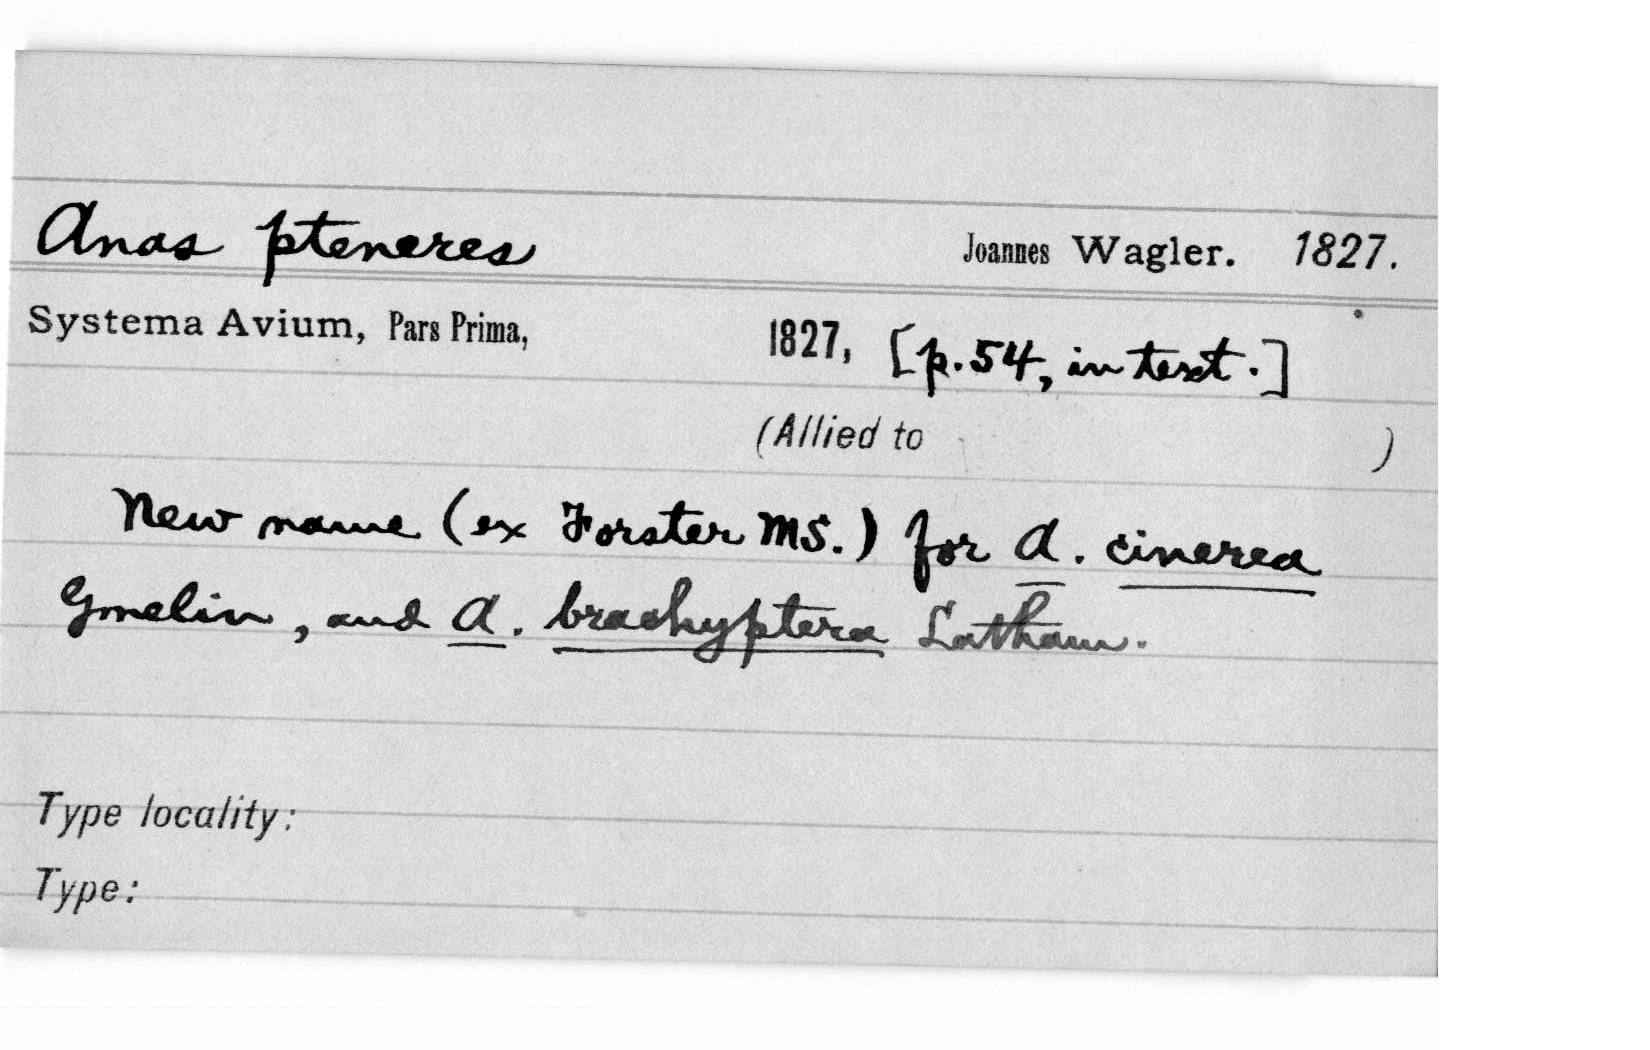 Anas pteneres Joannes Wagler. 1827.
Systema Avium, Pars Prima, 1827, [p. 54, in text.]
(Allied to )
New name (ex Forster MS.) for A. cinerea
Gmelin, and A. brachyptera Latham.
Type locality:
Type: